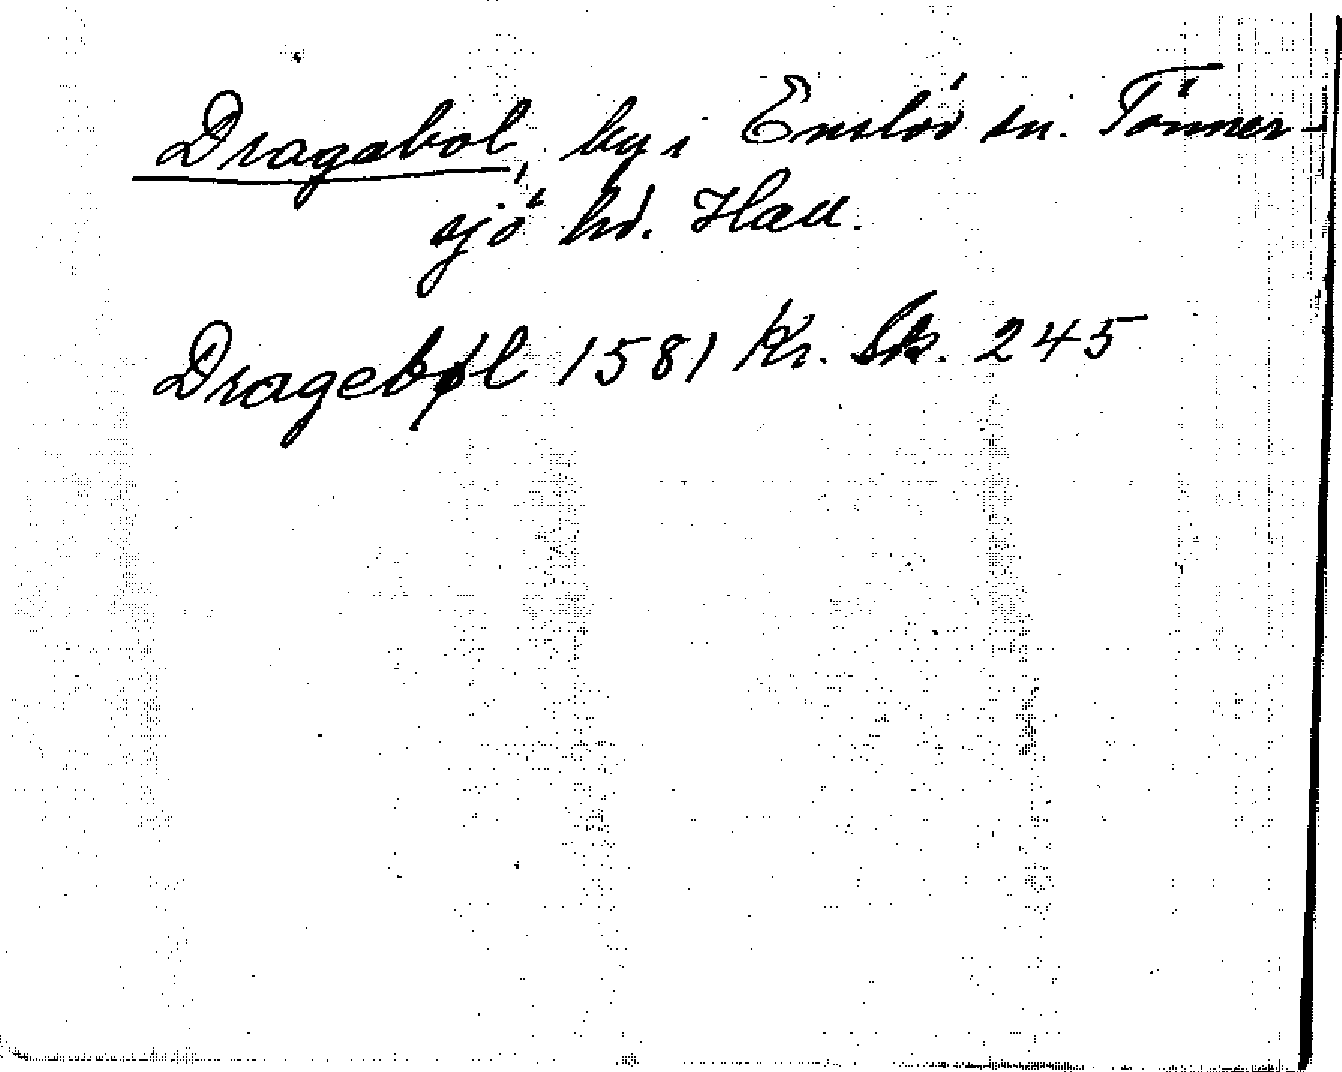 Dragabol, by i Enslöv sn. Tönner-
sjö hd. Hall.
Dragebøl 1581 Kr. Sk. 245